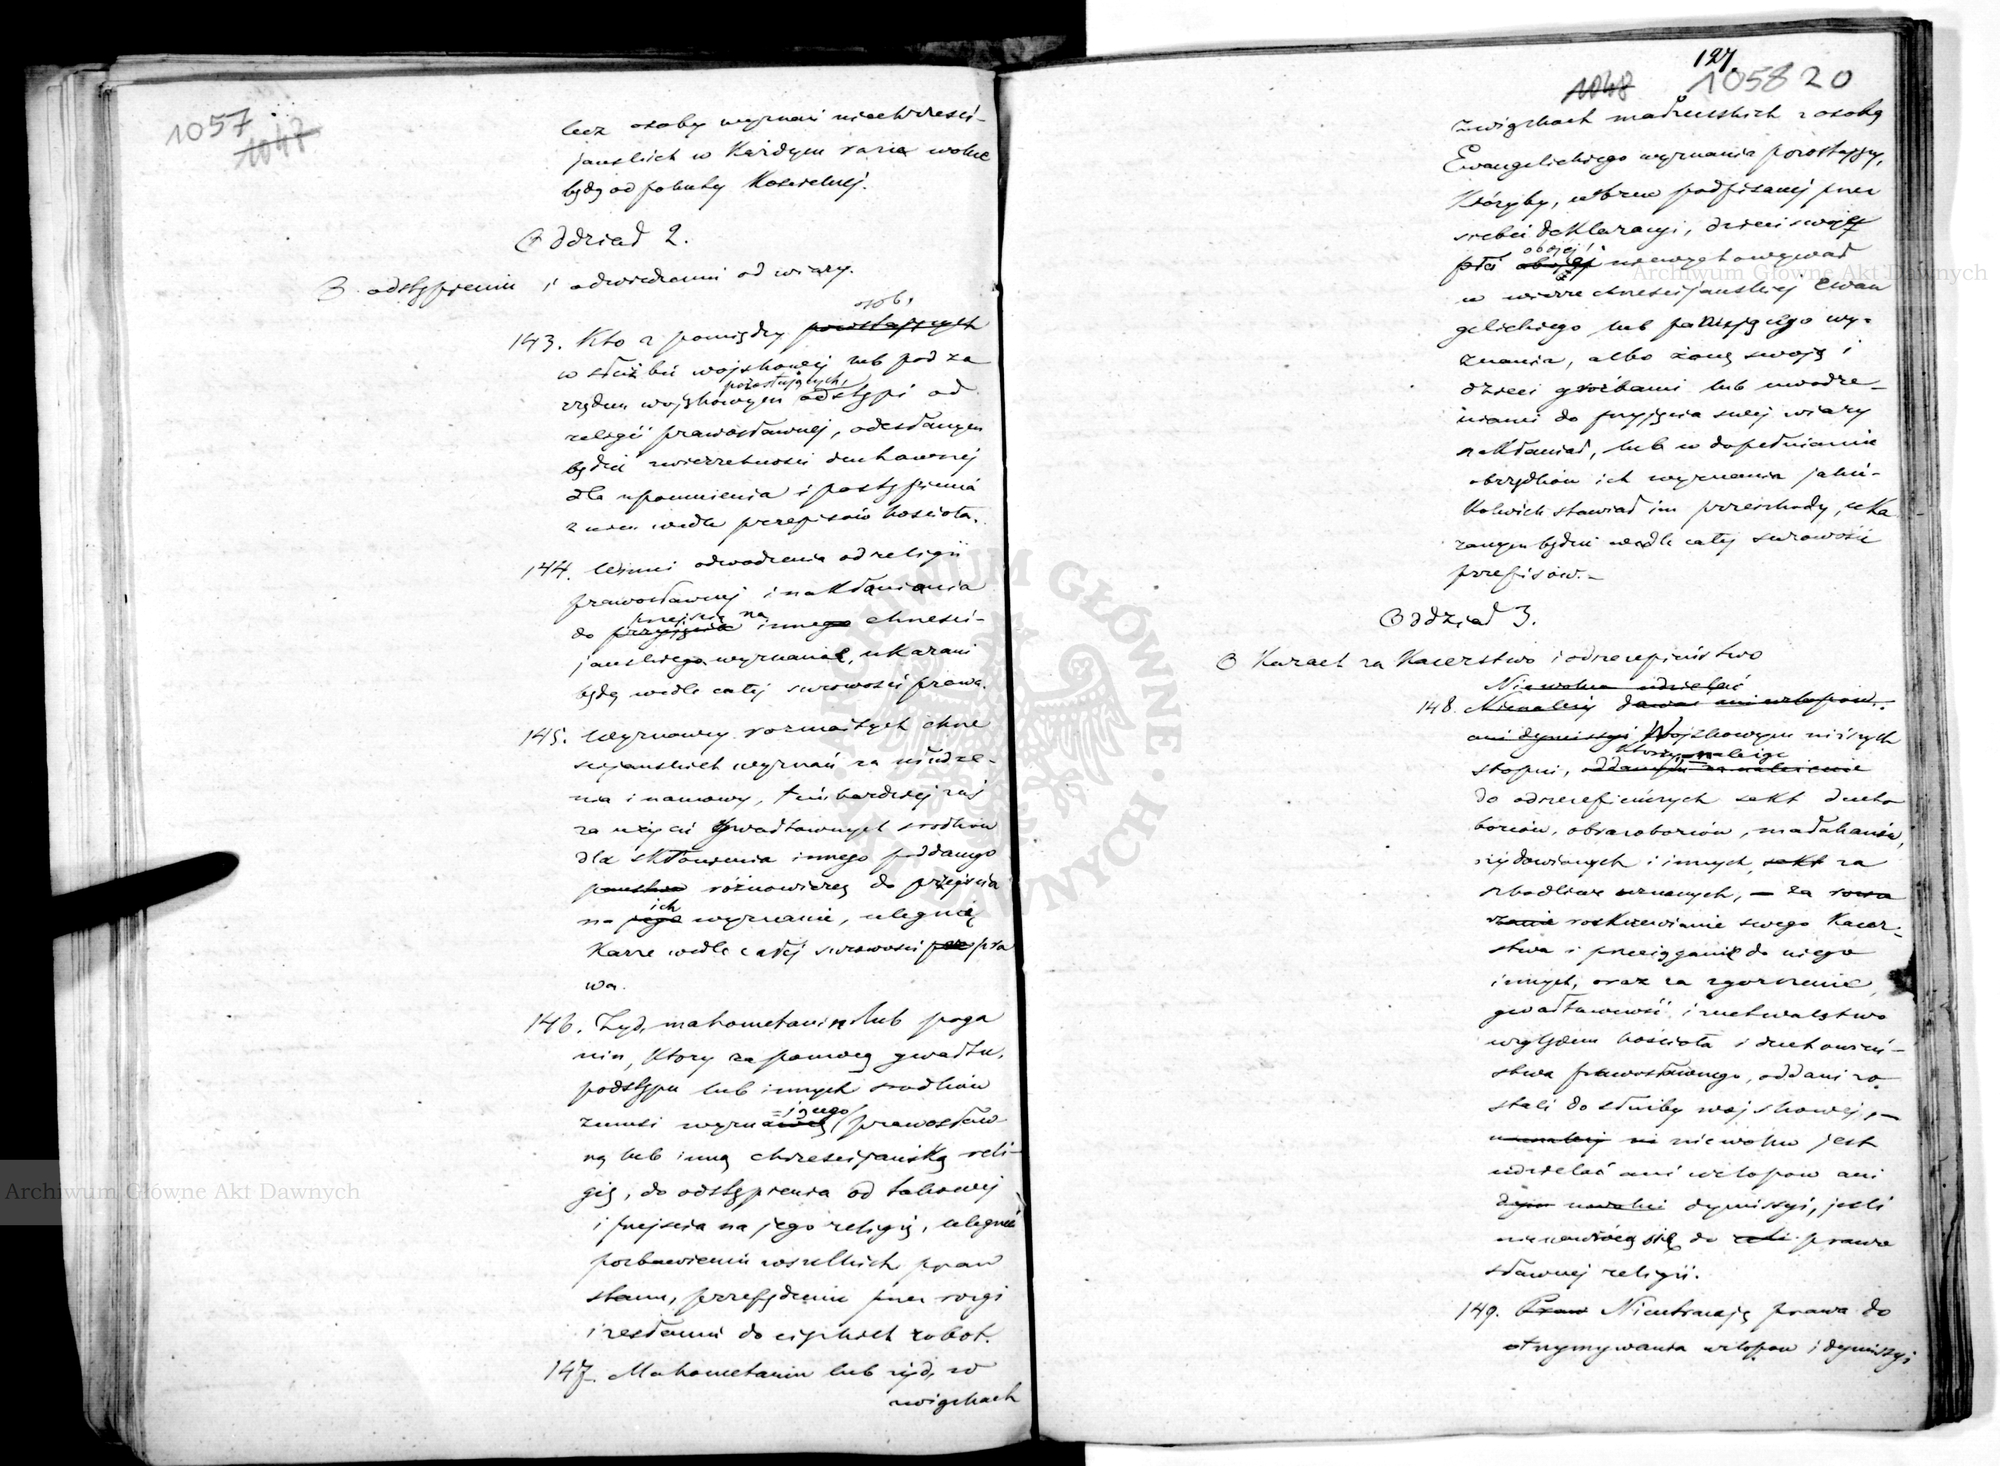 1057
1047
lecz osoby wyznań niechrześci-
jańskich w każdym razie wolne
będą od pokuty kościelnej.
Oddział 2.
O odstąpieniu i odwiedzeniu od wiary.
osób,
143. Kto z pomiędzy pozostających
w służbie wojskowej lub pod za
pozostających,
rządem wojskowym odstąpi od
religii prawosławnej, odesłanym
będzie zwierzchności duchownej
dla upomnienia i postąpienia
z nim wedle przepisów kościoła.
144. Winni odwodzenia od religii
prawosławnej i nakłaniania
przejścia na
do przyjęcia innego chrześci-
jańskiego wyznania, ukarani
będą wedle całej surowości prawa.
145. Wyznawcy rozmaitych chrze
ścijańskich wyznań za uwodze-
nia i namowy, tem bardziej zaś
za użycie gwałtownych środków
dla skłonienia innego poddanego
państwa różnowiercę do przejścia
ich
na jego wyznanie, ulegnie
karze wedle całej surowości pra
wa.
146. Żyd, mahometanin lub poga
nin, który za pomocą gwałtu,
podstępu lub innych środków
=jącego
zmusi wyznawcę prawosław
ną lub inną chrześcijańską reli-
gię, do odstąpienia od takowej
i przejścia na jego religię, ulegnie
pozbawieniu wszelkich praw
stanu, przepędzeniu przez rózgi
i zesłaniu do ciężkich robot.
147. Mahometanin lub żyd, w
związkach
127.
1048 1058 20
związkach małżeńskich z osobą
Ewangelickiego wyznania pozostający,
któryby, wbrew podpisanej przez
siebie deklaracyi, dzieci swoje
obojej
płci obojej niewychowywał
w wierze chrześcijańskiej Ewan
gelickiego lub panującego wy-
znania, albo żonę swoję i
dzieci groźbami lub uwodze-
niami do przyjęcia swej wiary
nakłaniał, lub w dopełnianiu
obrządków ich wyznania jakie-
kolwiek stawiał im przeszkody, uka
ranym będzie wedle całej surowości
przepisów.-
Oddział 3.
O karach za kacerstwo i odszczepieństwo
Niewolno udzielać
148. Nienależy dawać ani urlopów.
ani dymissyi Wojskowym niższych
którzy należąc
stopni,
do odszczepieńczych sekt ducho
borców, obrazoborców, małakanów,
żydowionych i innych, sekt za
szkodliwe uznanych, – za
rozkrzewianie swego kacer-
stwa i przeciąganie do niego
innych, oraz za zgorszenie,
gwałtowność i zuchwalstwo
względem kościoła i duchowień-
stwa prawosławnego, oddani zo
stali do służby wojskowej, –
nienależy niewolno jest
udzielać ani urlopów ani
dymissyi, jeśli
nienawrócą się do prawo
sławnej religii.
149. Praw Nieutracają prawa do
otrzymywania urlopów i dymissyi